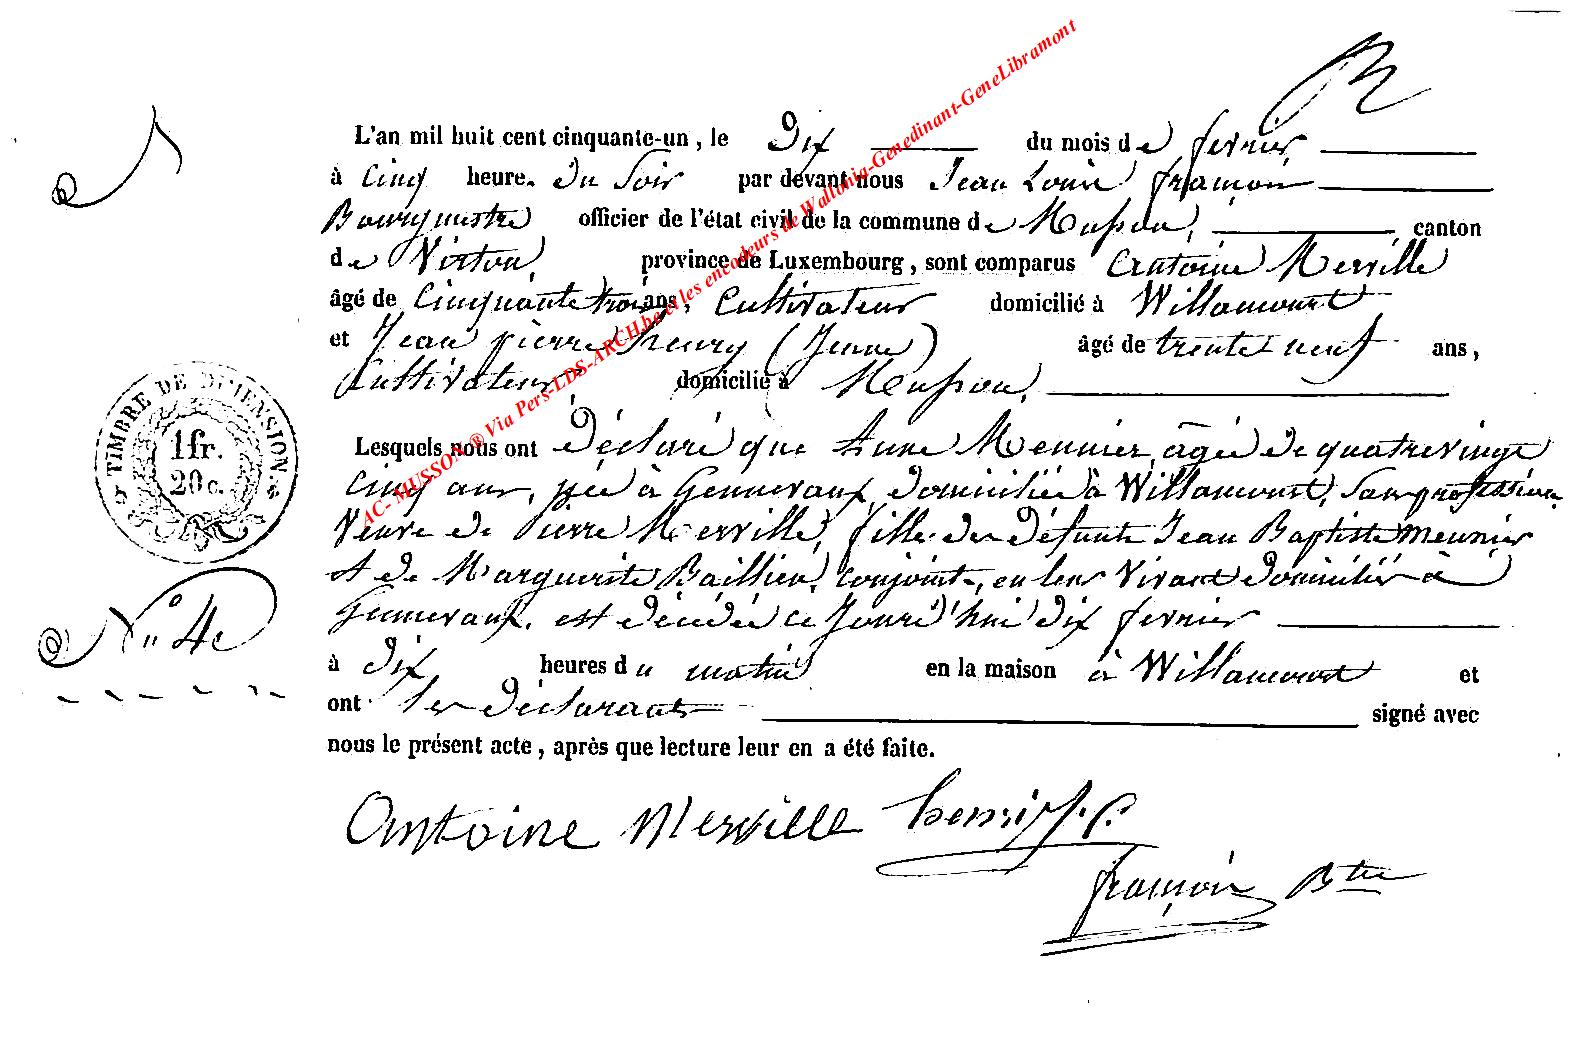 L'an mil huit cent cinquante-un, le Dix du mois de fevrier,
à Cinq heure. du Soir par devant nous Jean Louis françois
Bourgmestre officier de l'état civil de la commune de Musson, canton
de Virton, province de Luxembourg, sont comparus Antoine Merville
âgé de Cinquante trois ans, Cultivateur domicilié à Willancourt
et Jean pierre henry (Jeune) âgé de trente neuf ans,
Cultivateur domicilié à Musson,
Lesquels nous ont Déclaré que Anne Meunier, âgée de quatre vingt
Cinq ans, née à Gennevaux, domiciliée à Willancourt, Sans profession
Veuve de Pierre Merville, fille des défunts Jean Baptiste Meunier
et de Marguerite Baillieu, conjoints, en leur vivant domiciliés à
Gennevaux, est décédée ce Jourd'hui dix fevrier
à dix heures du matin en la maison à Willancourt et
ont les Déclarants signé avec
nous le présent acte, après que lecture leur en a été faite.
TIMBRE DE DIMENSION
1 fr.
20 c.
N° 4
Antoine Merville henri J. P.
françois Btre
AC-MUSSON® Via Pers-LDS-ARCH.be et les encodeurs de Wallonia-Genedinant-GeneLibramont